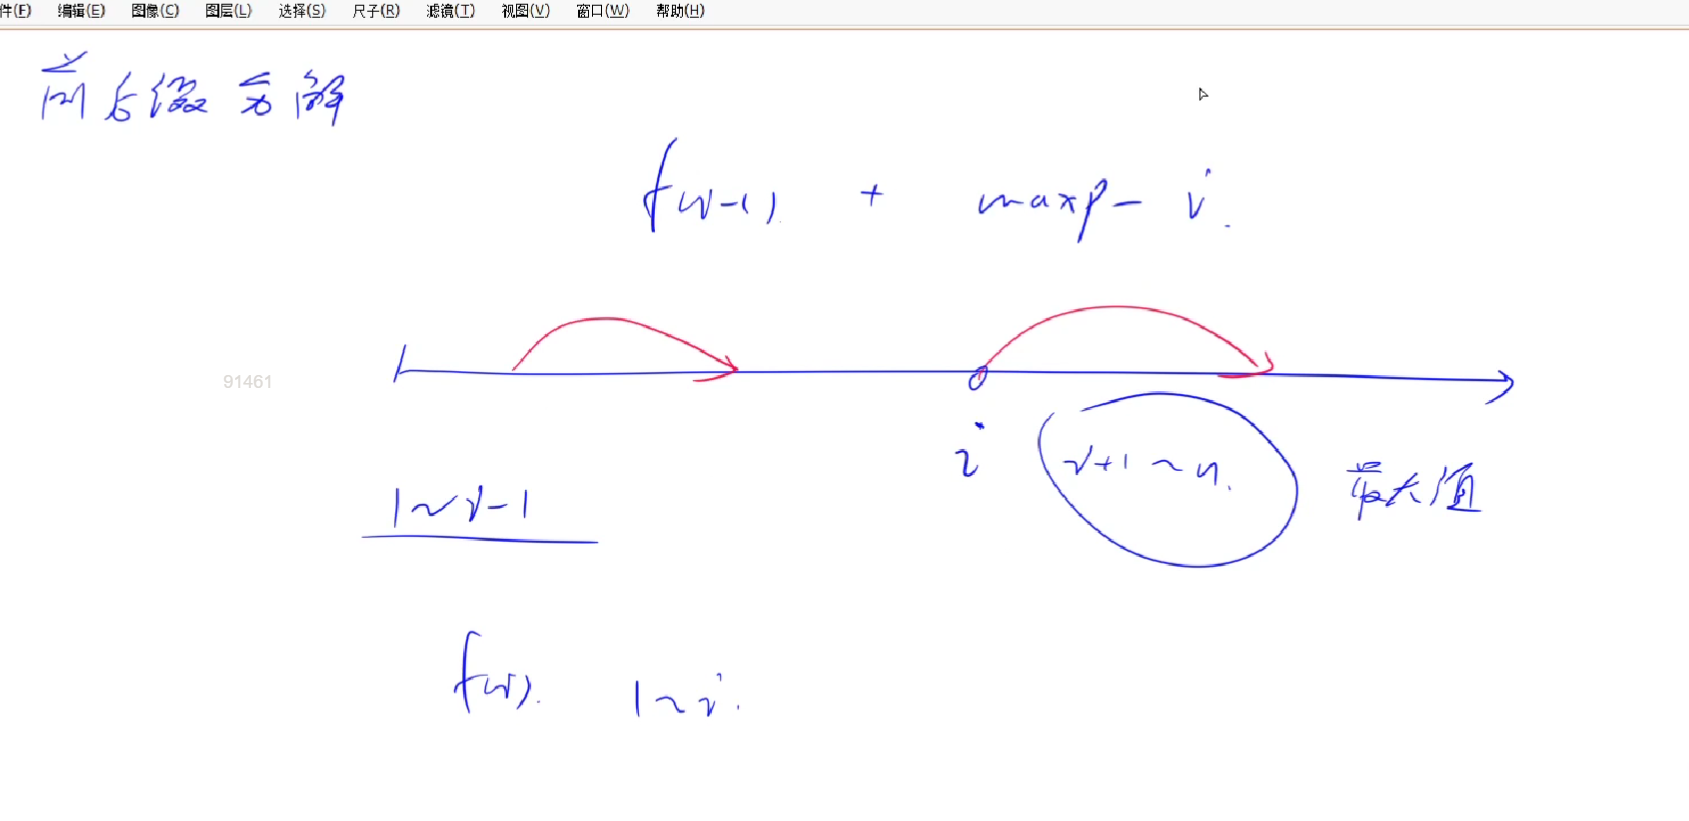 件(F) 编辑(E) 图像(C) 图层(L) 选择(S) 尺子(R) 滤镜(T) 视图(V) 窗口(W) 帮助(H)
前后缀分解
f(i-1) + maxp - i.
91461
i
i+1 ~ n.
最大值
1 ~ i-1
f(i). 1 ~ i.